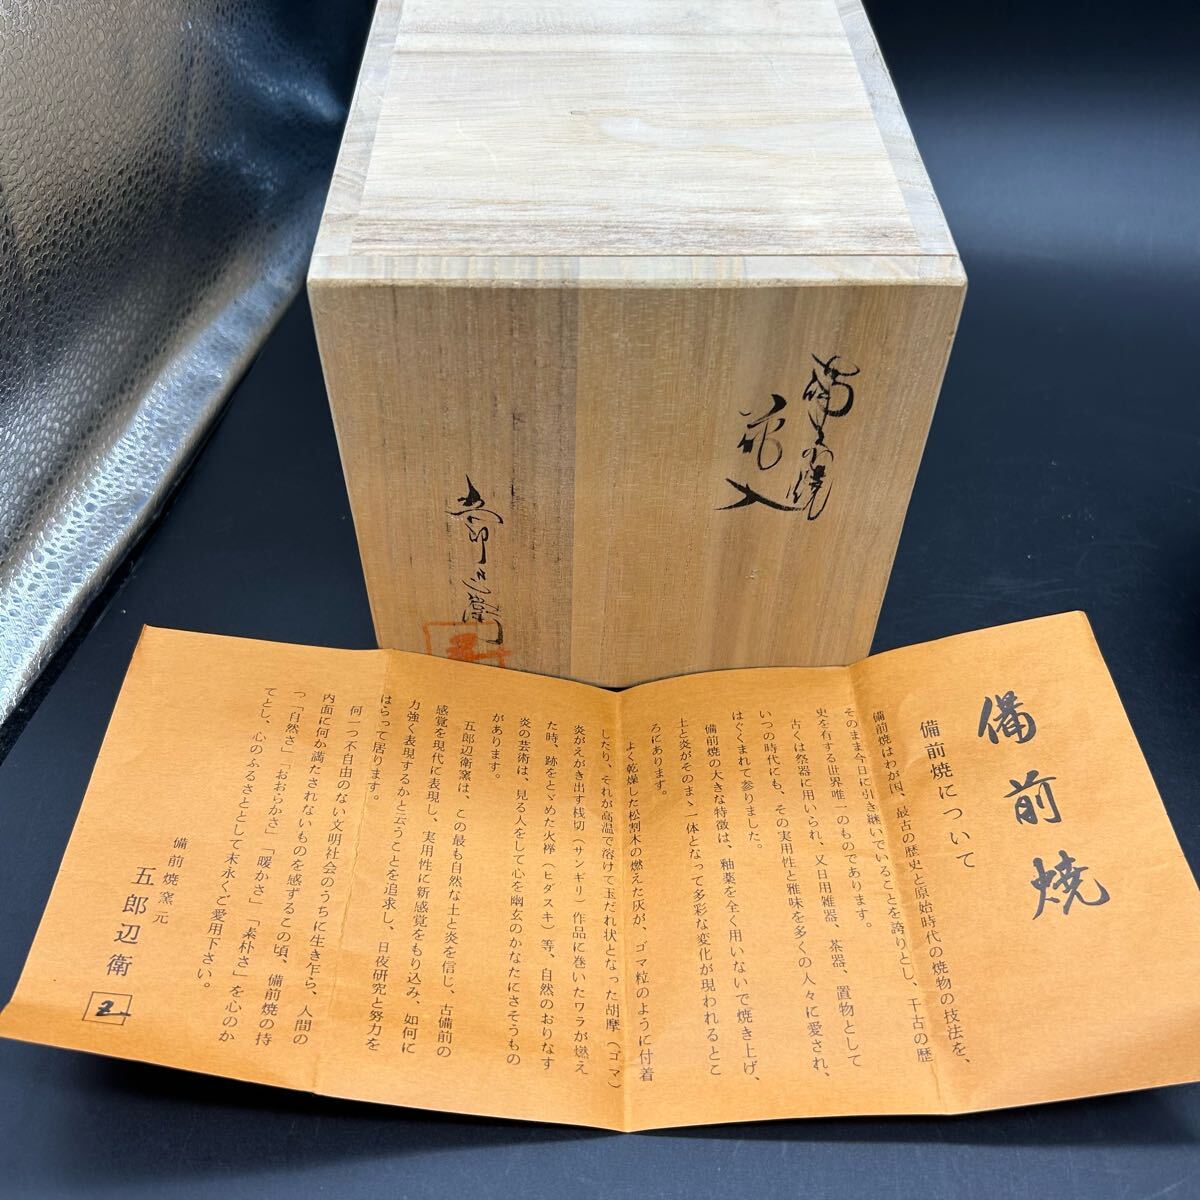 備前焼
花入
五郎辺衛
備前焼
備前焼について
備前焼はわが国、最古の歴史と原始時代の焼物の技法を、
そのまま今日に引き継いでいることを誇りとし、千古の歴
史を有する世界唯一のものであります。
古くは祭器に用いられ、又日用雑器、茶器、置物として
いつの時代にも、その実用性と雅味を多くの人々に愛され、
はぐくまれて参りました。
備前焼の大きな特徴は、釉薬を全く用いないで焼き上げ、
土と炎がそのまゝ一体となって多彩な変化が現われるとこ
ろにあります。
よく乾燥した松割木の燃えた灰が、ゴマ粒のように付着
したり、それが高温で溶けて玉だれ状となった胡摩（ゴマ）
炎がえがき出す桟切（サンギリ）作品に巻いたワラが燃え
た時、跡をとゞめた火襷（ヒダスキ）等、自然のおりなす
炎の芸術は、見る人をして心を幽玄のかなたにさそうもの
があります。
五郎辺衛窯は、この最も自然な土と炎を信じ、古備前の
感覚を現代に表現し、実用性に新感覚をもり込み、如何に
力強く表現するかと云うことを追求し、日夜研究と努力を
はらって居ります。
何一つ不自由のない文明社会のうちに生き乍ら、人間の
内面に何か満たされないものを感ずるこの頃、備前焼の持
つ「自然さ」「おおらかさ」「暖かさ」「素朴さ」を心のか
てとし、心のふるさととして末永くご愛用下さい。
備前焼窯元
五郎辺衛